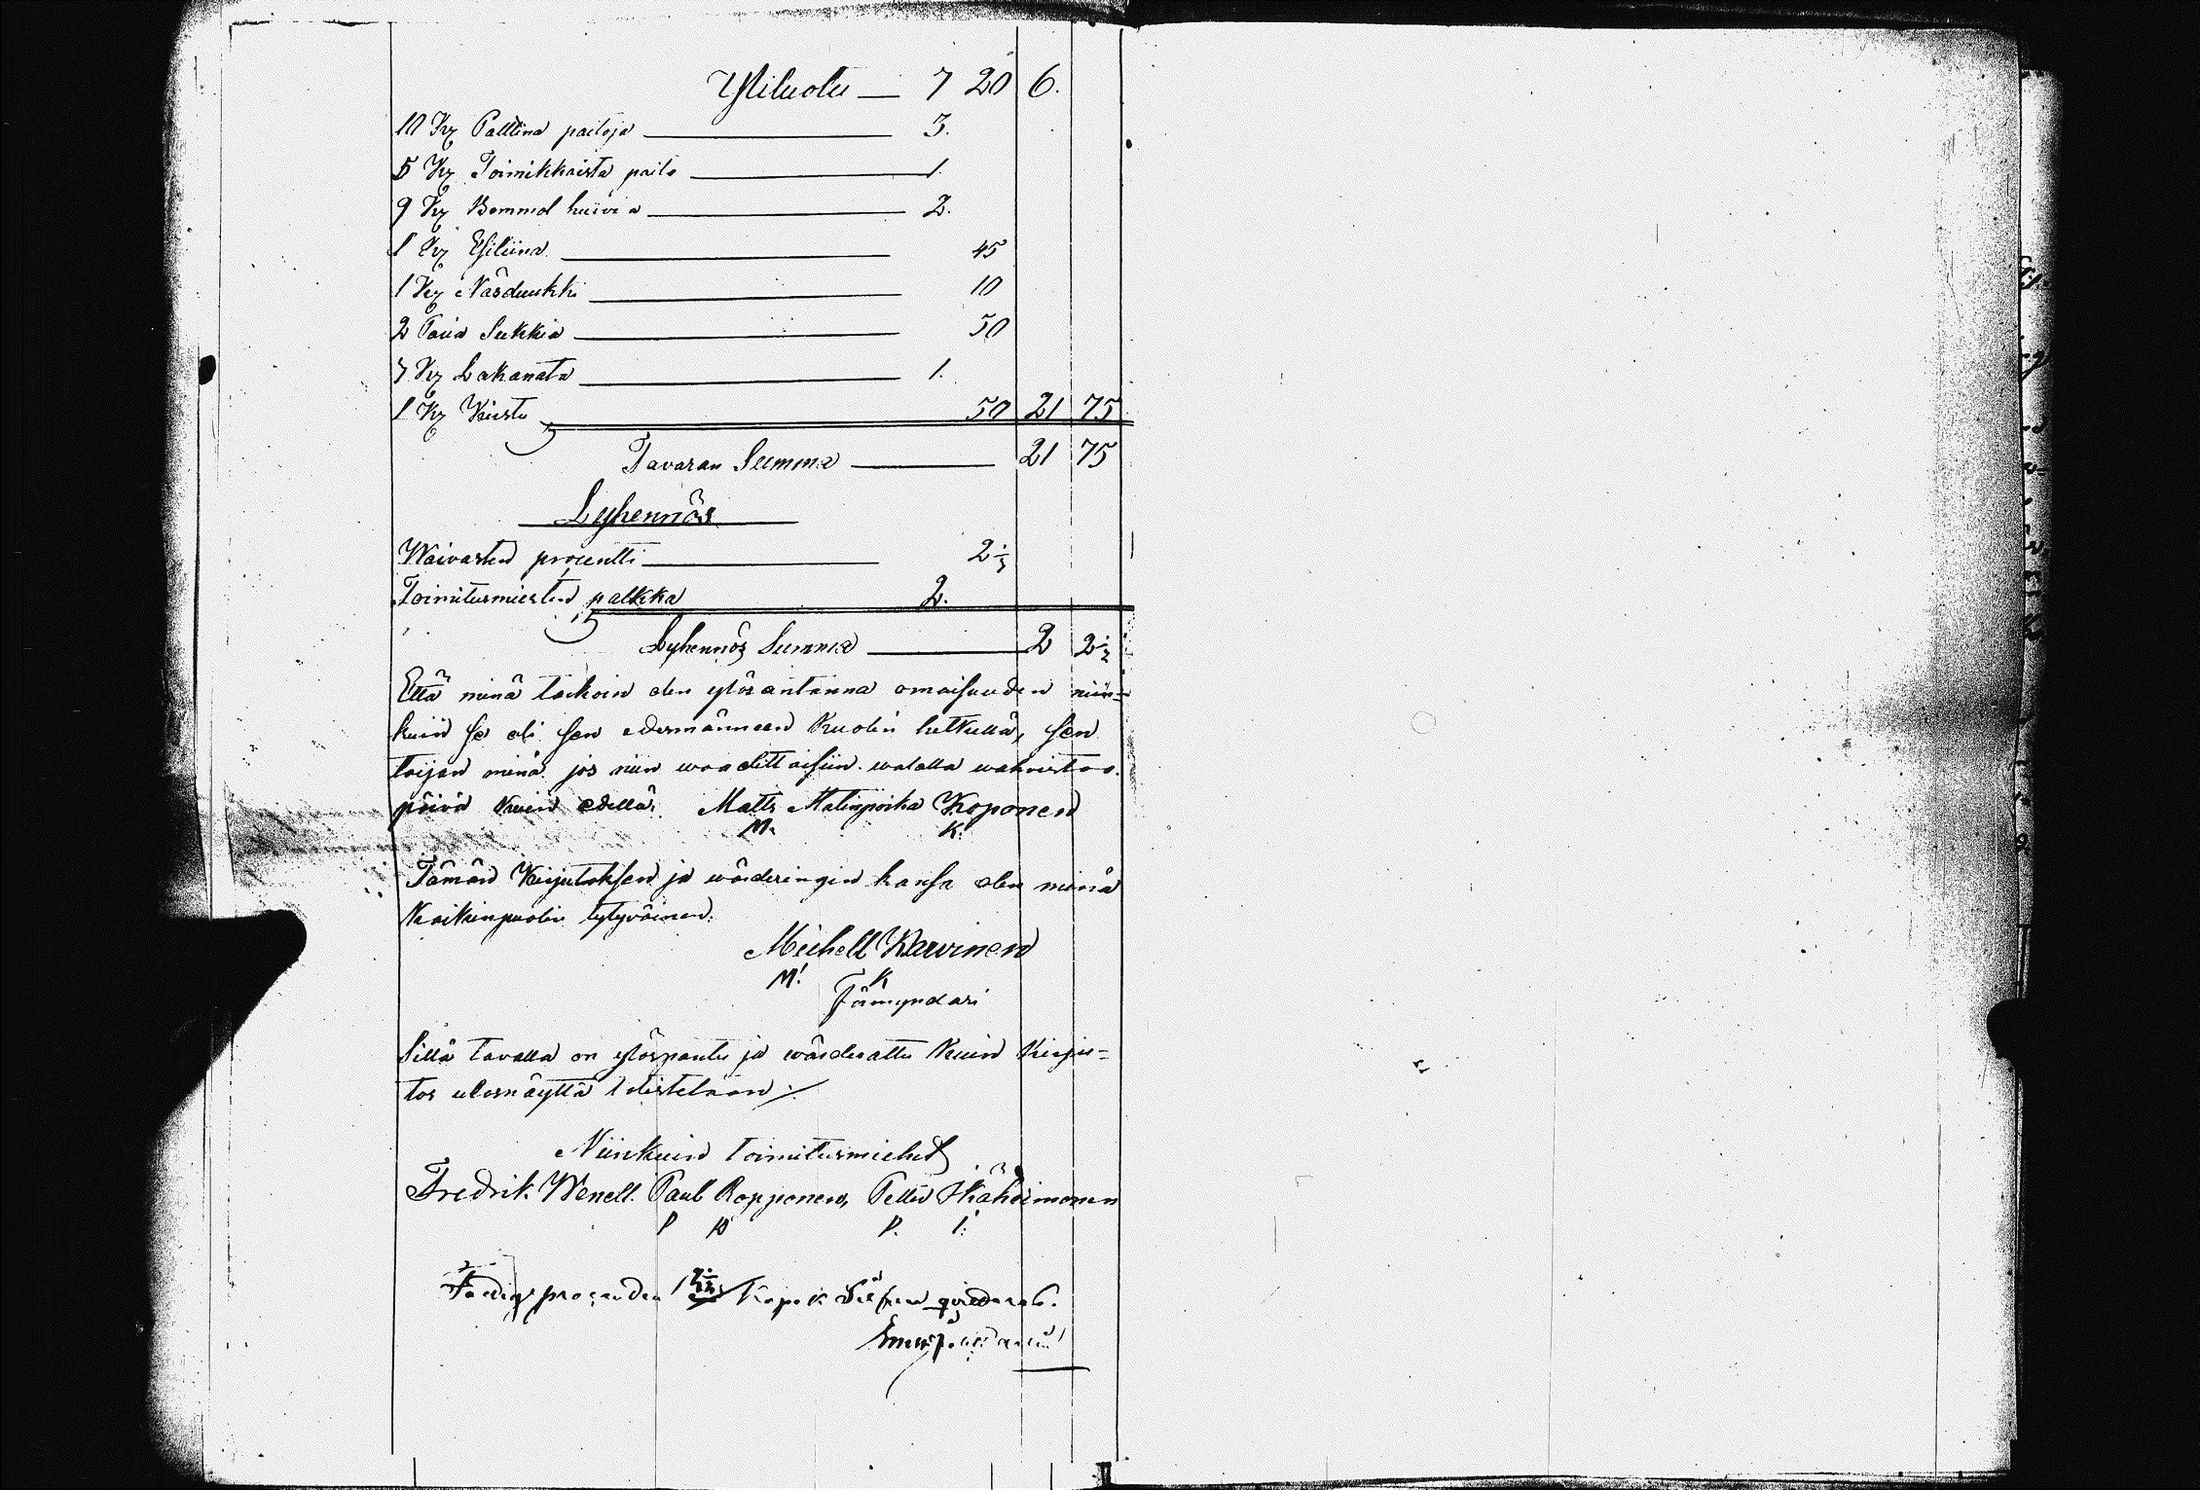 Ylituotu — 7 20 6.
10 Kz Palttina paitoja — 3.
5 Kz Toimikkaista paito — 1.
9 Kz Bommol huivia — 2.
1 Kz Esiliina — 45
1 Kz Näsduukki — 10
2 Paria Sukkia — 50
7 Kz Lakanata — 1.
1 Kz Kirstu — 50 21 75
Tavaran Summa — 21 75
Lyhennös
Waivasten prosentti — 2½
Toimitusmiesten palkka 2.
Lyhennös Summa — 2 2½
Että minä täikoin olen ylösantanna omaisuuden niin=
kuin se oli sen edesmänneen kuolin hetkellä, sen
taijan minä jos niin waadittaisiin walalla wahvistaa.
päivä kuin edellä. Matts Matinpoika Koponen
M. K.
Tämän Kirjutoksen ja wärderingin kansa olen minä
Kaikinpuolin tytyväinen.
Michell Karvinen
M. K
Förmyndari
Sillä tavalla on ylöspantu ja wärderattu kuin Kirju=
tos ulosnäyttä todistetaan ./.
Niinkuin toimitusmiehet
Fredrik Wenell. Paul Ropponen, Petter Ikäheimonen
P R P. I.
Fattigprocenden 2½ Kopek Silfver qvitteras.